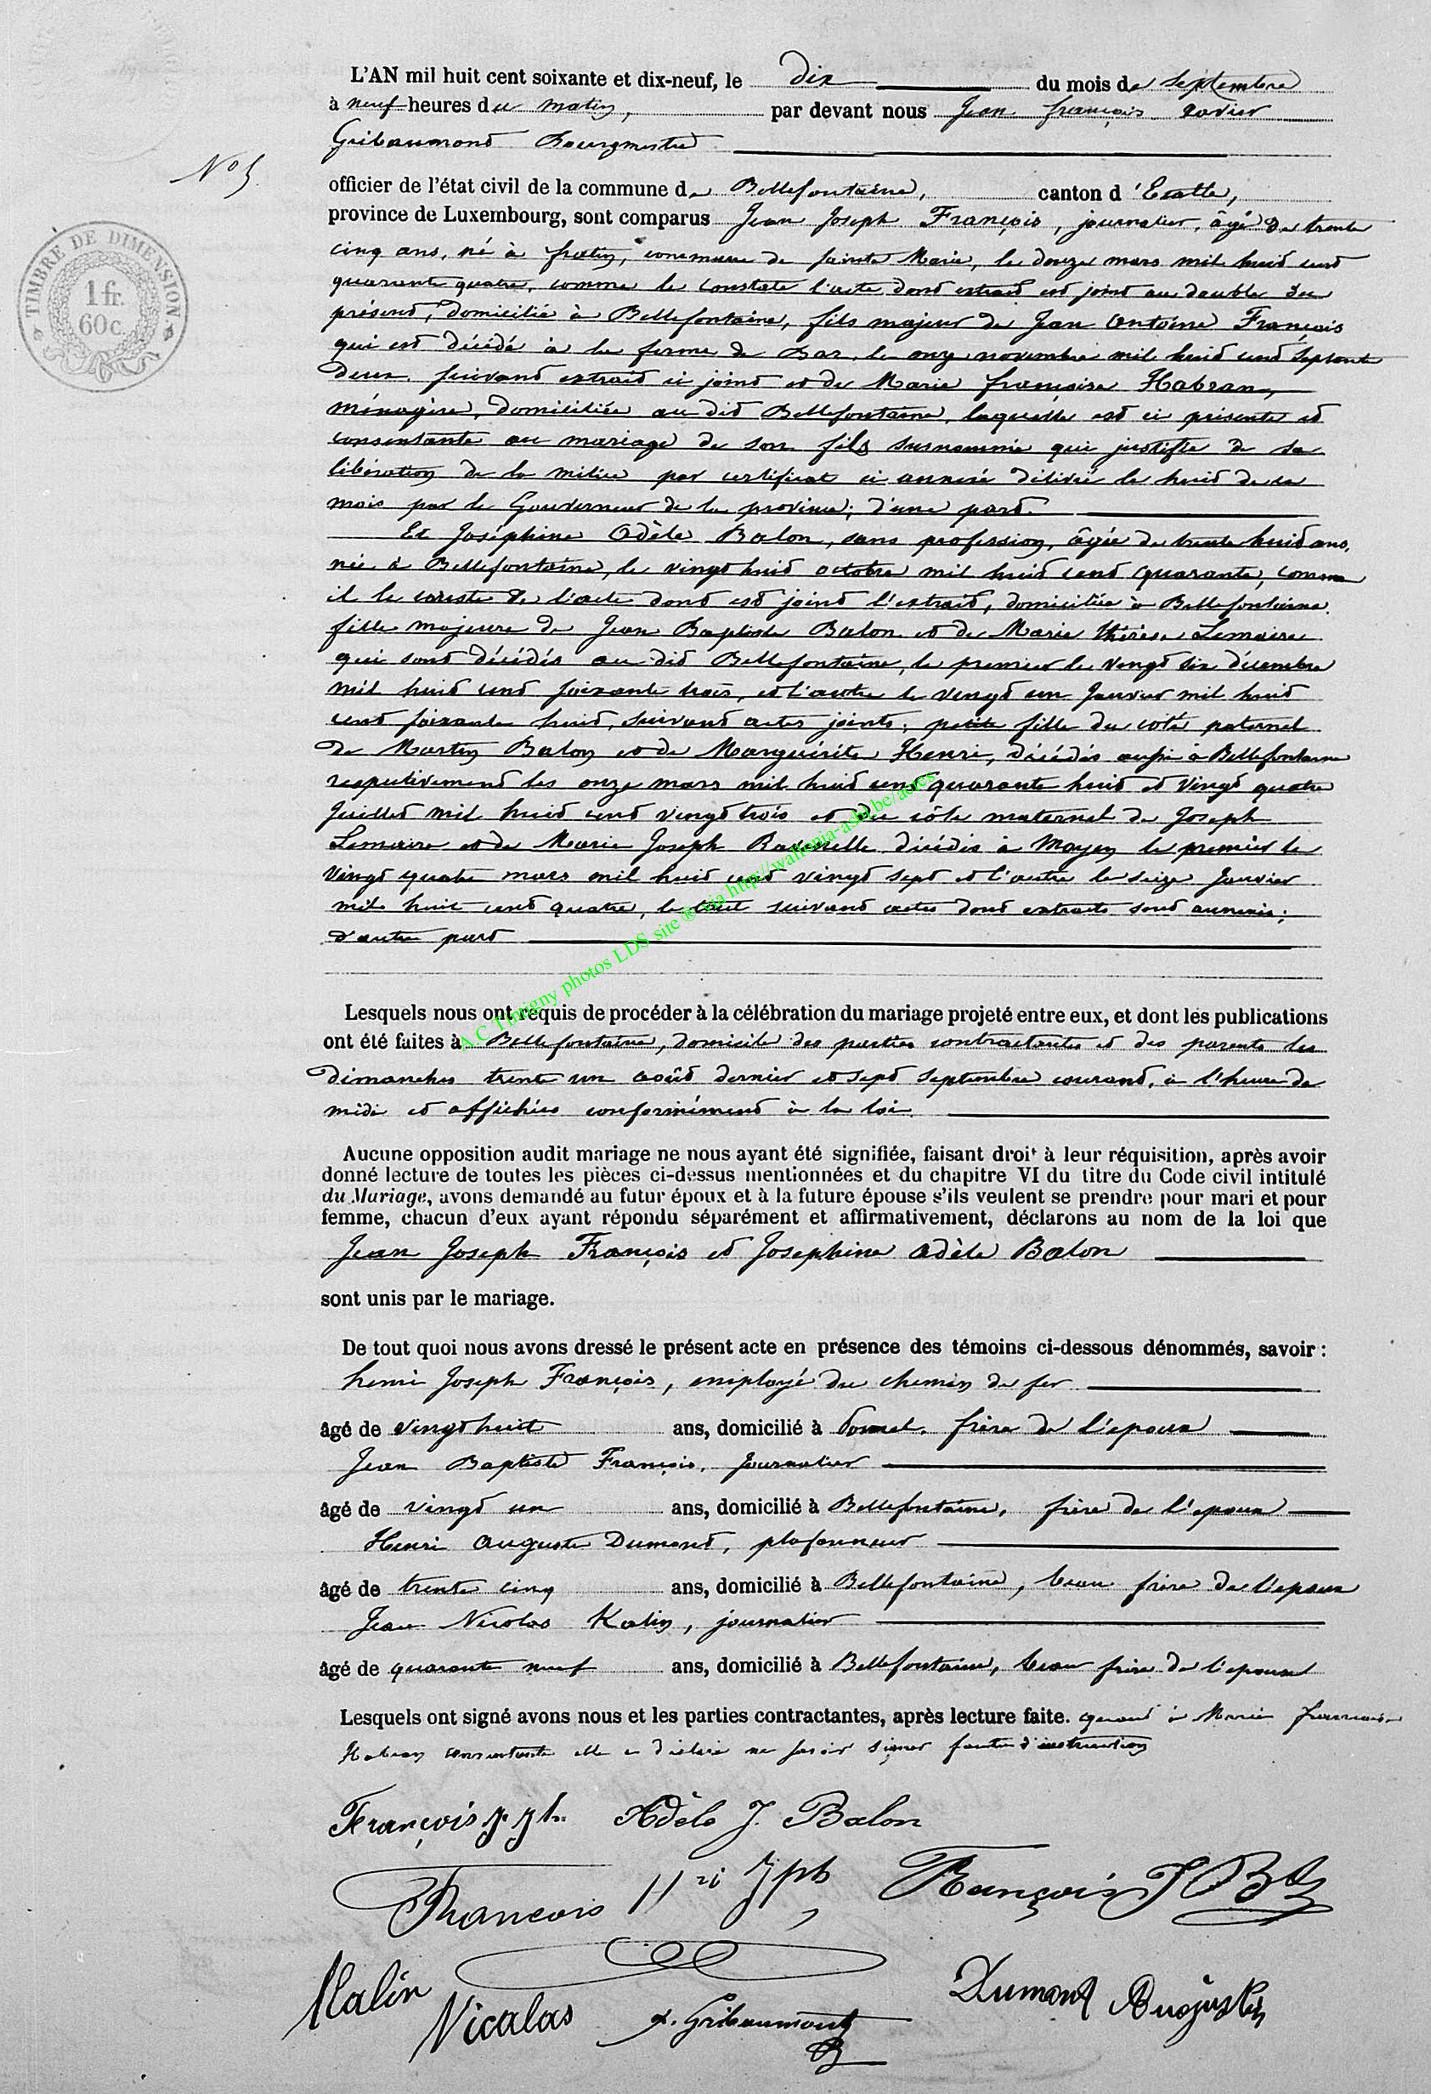 L'AN mil huit cent soixante et dix-neuf, le dix du mois de septembre
à neuf heures du matin, par devant nous Jean françois xavier
Gribaumont Bourgmestre
N° 5.
officier de l'état civil de la commune de Bellefontaine, canton d'Etalle,
province de Luxembourg, sont comparus Jean Joseph François, journalier, âgé de trente
cinq ans, né à fratin, commune de sainte Marie, le douze mars mil huit cent
quarante quatre, comme le constate l'acte dont extrait est joint au double du
présent, domicilié à Bellefontaine, fils majeur de Jean Antoine François
qui est décédé à la ferme de Bar, le onze novembre mil huit cent septante
deux, suivant extrait ci joint et de Marie françoise Habran,
ménagère, domiciliée au dit Bellefontaine, laquelle est ci présente et
consentante au mariage de son fils susnommé qui justifie de sa
libération de la milice par certificat ci annexé délivré le huit de ce
mois par le Gouverneur de la province; d'une part.
Et Joséphine Adèle Balon, sans profession, âgée de trente huit ans,
née à Bellefontaine, le vingt huit octobre mil huit cent quarante, comme
il le conste de l'acte dont est joint l'extrait, domiciliée à Bellefontaine.
fille majeure de Jean Baptiste Balon et de Marie thérèse Lemaire
qui sont décédés au dit Bellefontaine, le premier le vingt six décembre
mil huit cent soixante trois, et l'autre le vingt un Janvier mil huit
cent soixante huit, suivant actes joints; petite fille du côté paternel
de Martin Balon et de Marguérite Henri, décédés aussi à Bellefontaine
respectivement les onze mars mil huit cent quarante huit et vingt quatre
Juillet mil huit cent vingt trois et du côté maternel de Joseph
Lemaire et de Marie Joseph décédés à Moyen le premier le
vingt quatre mars mil huit cent vingt sept et l'autre le seize Janvier
mil huit cent quatre, le tout suivant actes dont extraits sont annexés;
d'autre part
A.C Tintigny photos LDS site ® via http://wallonia-asbl.be/actes
Lesquels nous ont requis de procéder à la célébration du mariage projeté entre eux, et dont les publications
ont été faites à Bellefontaine, domicile des parties contractantes et des parents les
dimanches trente un août dernier et sept septembre courant, à l'heure de
midi et affichées conformément à la loi.
Aucune opposition audit mariage ne nous ayant été signifiée, faisant droit à leur réquisition, après avoir
donné lecture de toutes les pièces ci-dessus mentionnées et du chapitre VI du titre du Code civil intitulé
du Mariage, avons demandé au futur époux et à la future épouse s'ils veulent se prendre pour mari et pour
femme, chacun d'eux ayant répondu séparément et affirmativement, déclarons au nom de la loi que
Jean Joseph François et Josephine Adèle Balon
sont unis par le mariage.
De tout quoi nous avons dressé le présent acte en présence des témoins ci-dessous dénommés, savoir :
henri Joseph François, employé du chemin de fer
âgé de vingt huit ans, domicilié à frère de l'époux
Jean Baptiste François, Journalier
âgé de vingt un ans, domicilié à Bellefontaine, frère de l'époux
Henri Auguste Dumont, plafonneur
âgé de trente cinq ans, domicilié à Bellefontaine, beau frère de l'époux
Jean Nicolas Kalin, journalier
âgé de quarante neuf ans, domicilié à Bellefontaine, beau frère de l'époux
Lesquels ont signé avons nous et les parties contractantes, après lecture faite. quant à Marie françoise
Habran consentante elle a déclaré ne savoir signer faute d'instruction
François J. Jh. Adèle J. Balon
François Hri Jph François J B
Kalin Nicalas x. Gribaumont Dumont Auguste
TIMBRE DE DIMENSION
1 fr.
60 c.